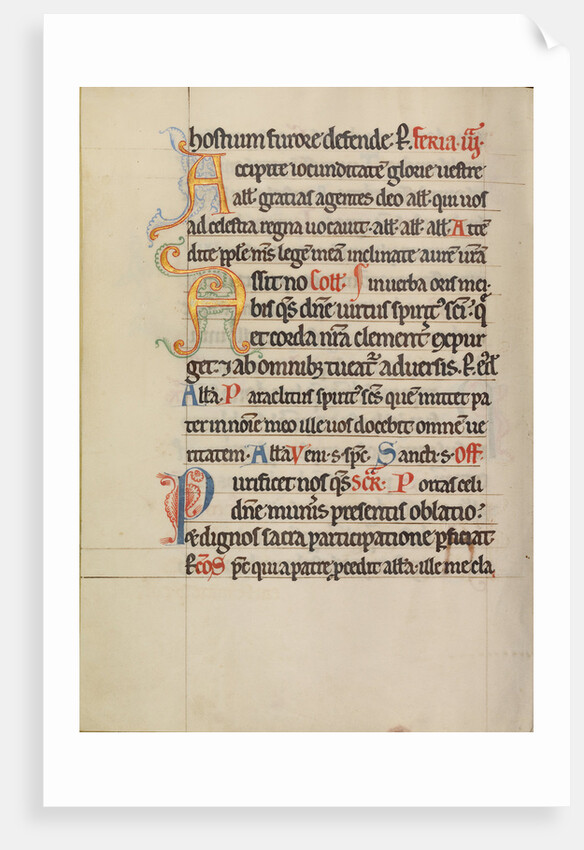 hostium furore defende R̃. feria. iii.
Accipite iocunditatē glorie uestre
all̃. gratias agentes deo all̃. qui uos
ad celestia regna uocauit. all̃. all̃. all̃. Attē
dite pp̃le m̃s legē meā inclinate aurē ur̃ā
Assit no Coll̃. S in uerba oris mei.
bis q̃s dñe uirtus spirit᷒ sc̃i. q̃
et corda nr̃a clement̃ expur
get. ⁊ ab omnib; tueat̃ aduersis. R̃.
All̃a. P araclitus spirit᷒ sc̃s quem mittet pa
ter in noīe meo ille uos docebit omnem ue
ritatem. All̃a Veni. s. sp̃e. Sancti. s. Off̃
Purificet nos q̃s Scr̃. P ortas celi
dñe muneris presentis oblatio?
& dignos sacra participatione p̃ficiat.
R̃ cōs Sp̃c qui a patre p̃cedit all̃a. ille me cla